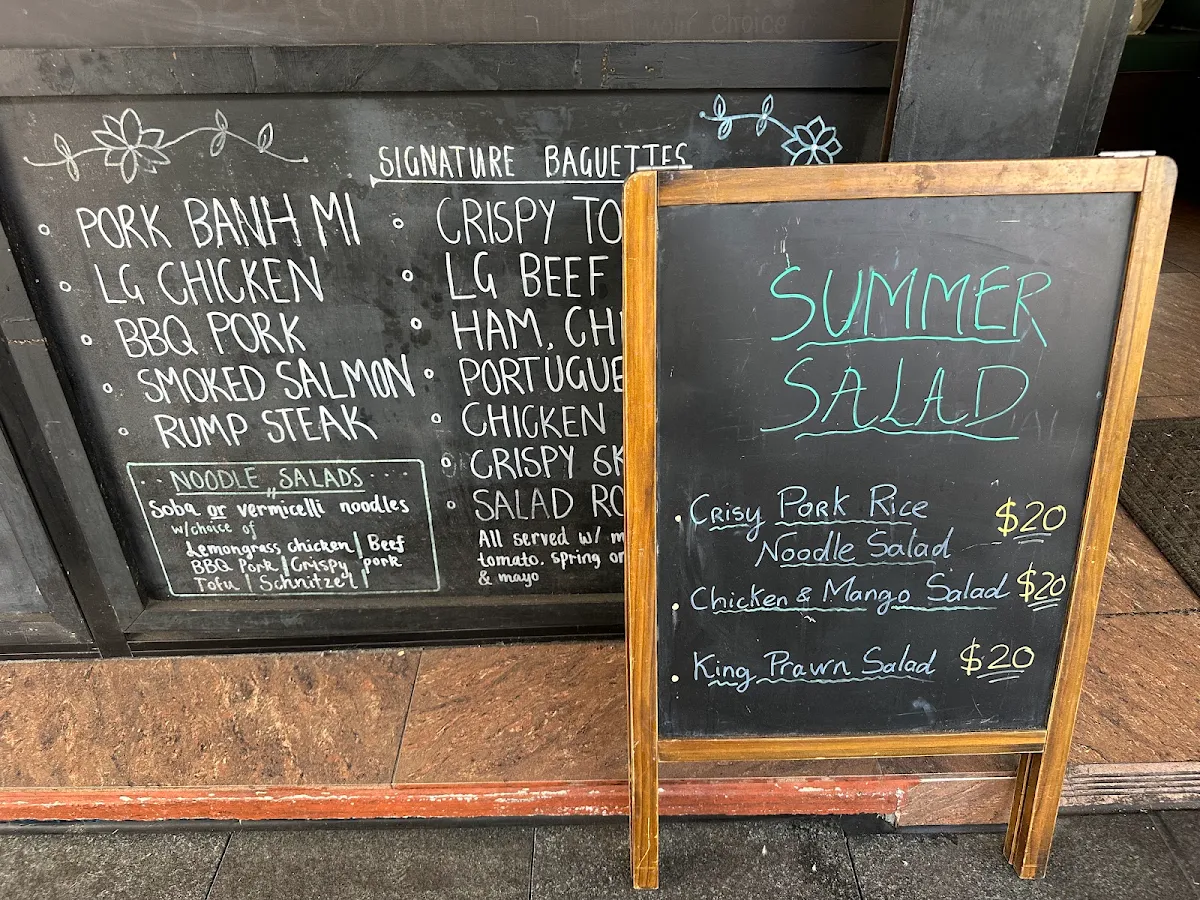 SIGNATURE BAGUETTES
PORK BANH MI
LG CHICKEN
BBQ PORK
SMOKED SALMON
RUMP STEAK
CRISPY
LG BEEF
HAM,
CHICKEN
CRISPY
SALAD
All served w/
tomato. spring
& mayo
NOODLE SALADS
Soba or vermicelli noodles
w/choice of
Lemongrass chicken | Beef
BBQ Pork | Crispy pork
Tofu | Schnitzel |
SUMMER
SALAD
Crisy Pork Rice
Noodle Salad $20
Chicken & Mango Salad $20
King Prawn Salad $20